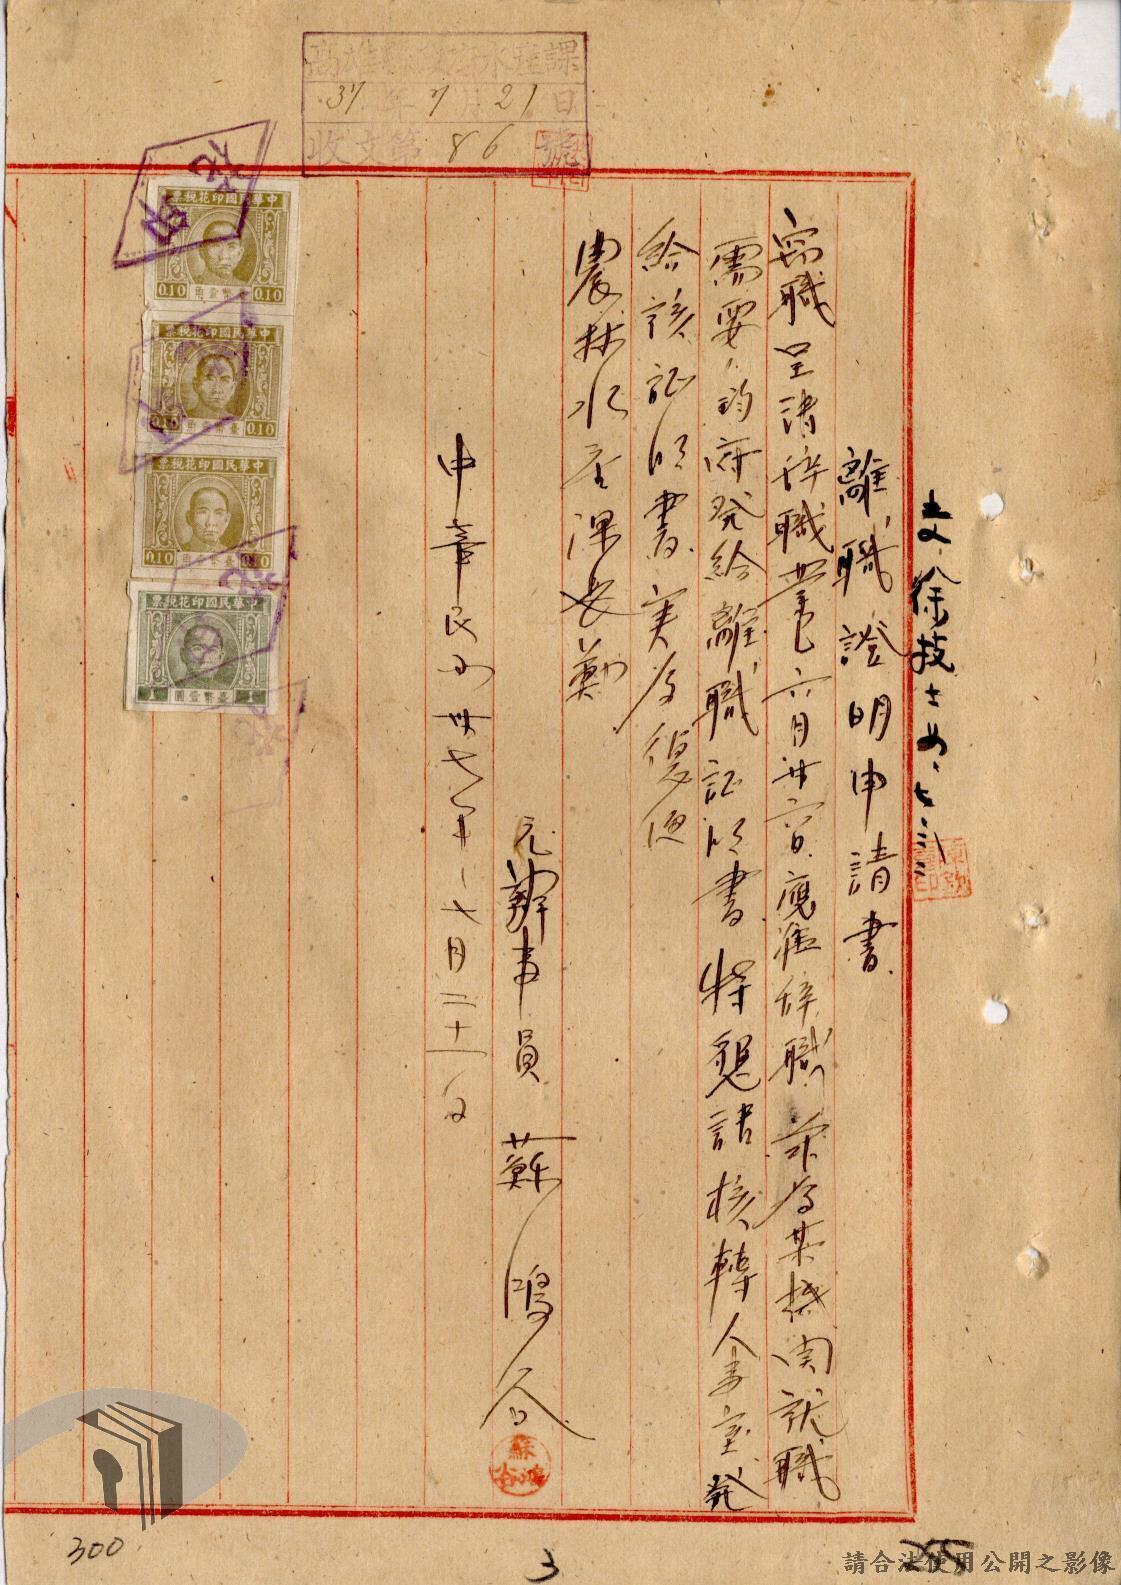 高雄縣政府水產課
37年7月21日
收文第86號
離職證明申請書
竊職呈請辞職業已六月廿六日應准辞職茲為某機関就職
需要鈞府発給離職証明書特懇請核轉人事室発
給該証明書实為德便
農林水產課長鄭
元辦事員 蘇鴻
中華民國卅七年七月二十一日
中華民國印花稅票
0.10 臺幣壹角 0.10
中華民國印花稅票
0.10 臺幣壹角 0.10
中華民國印花稅票
0.10 臺幣壹角 0.10
中華民國印花稅票
1 臺幣壹圓 1
300
3
255
請合法使用公開之影像